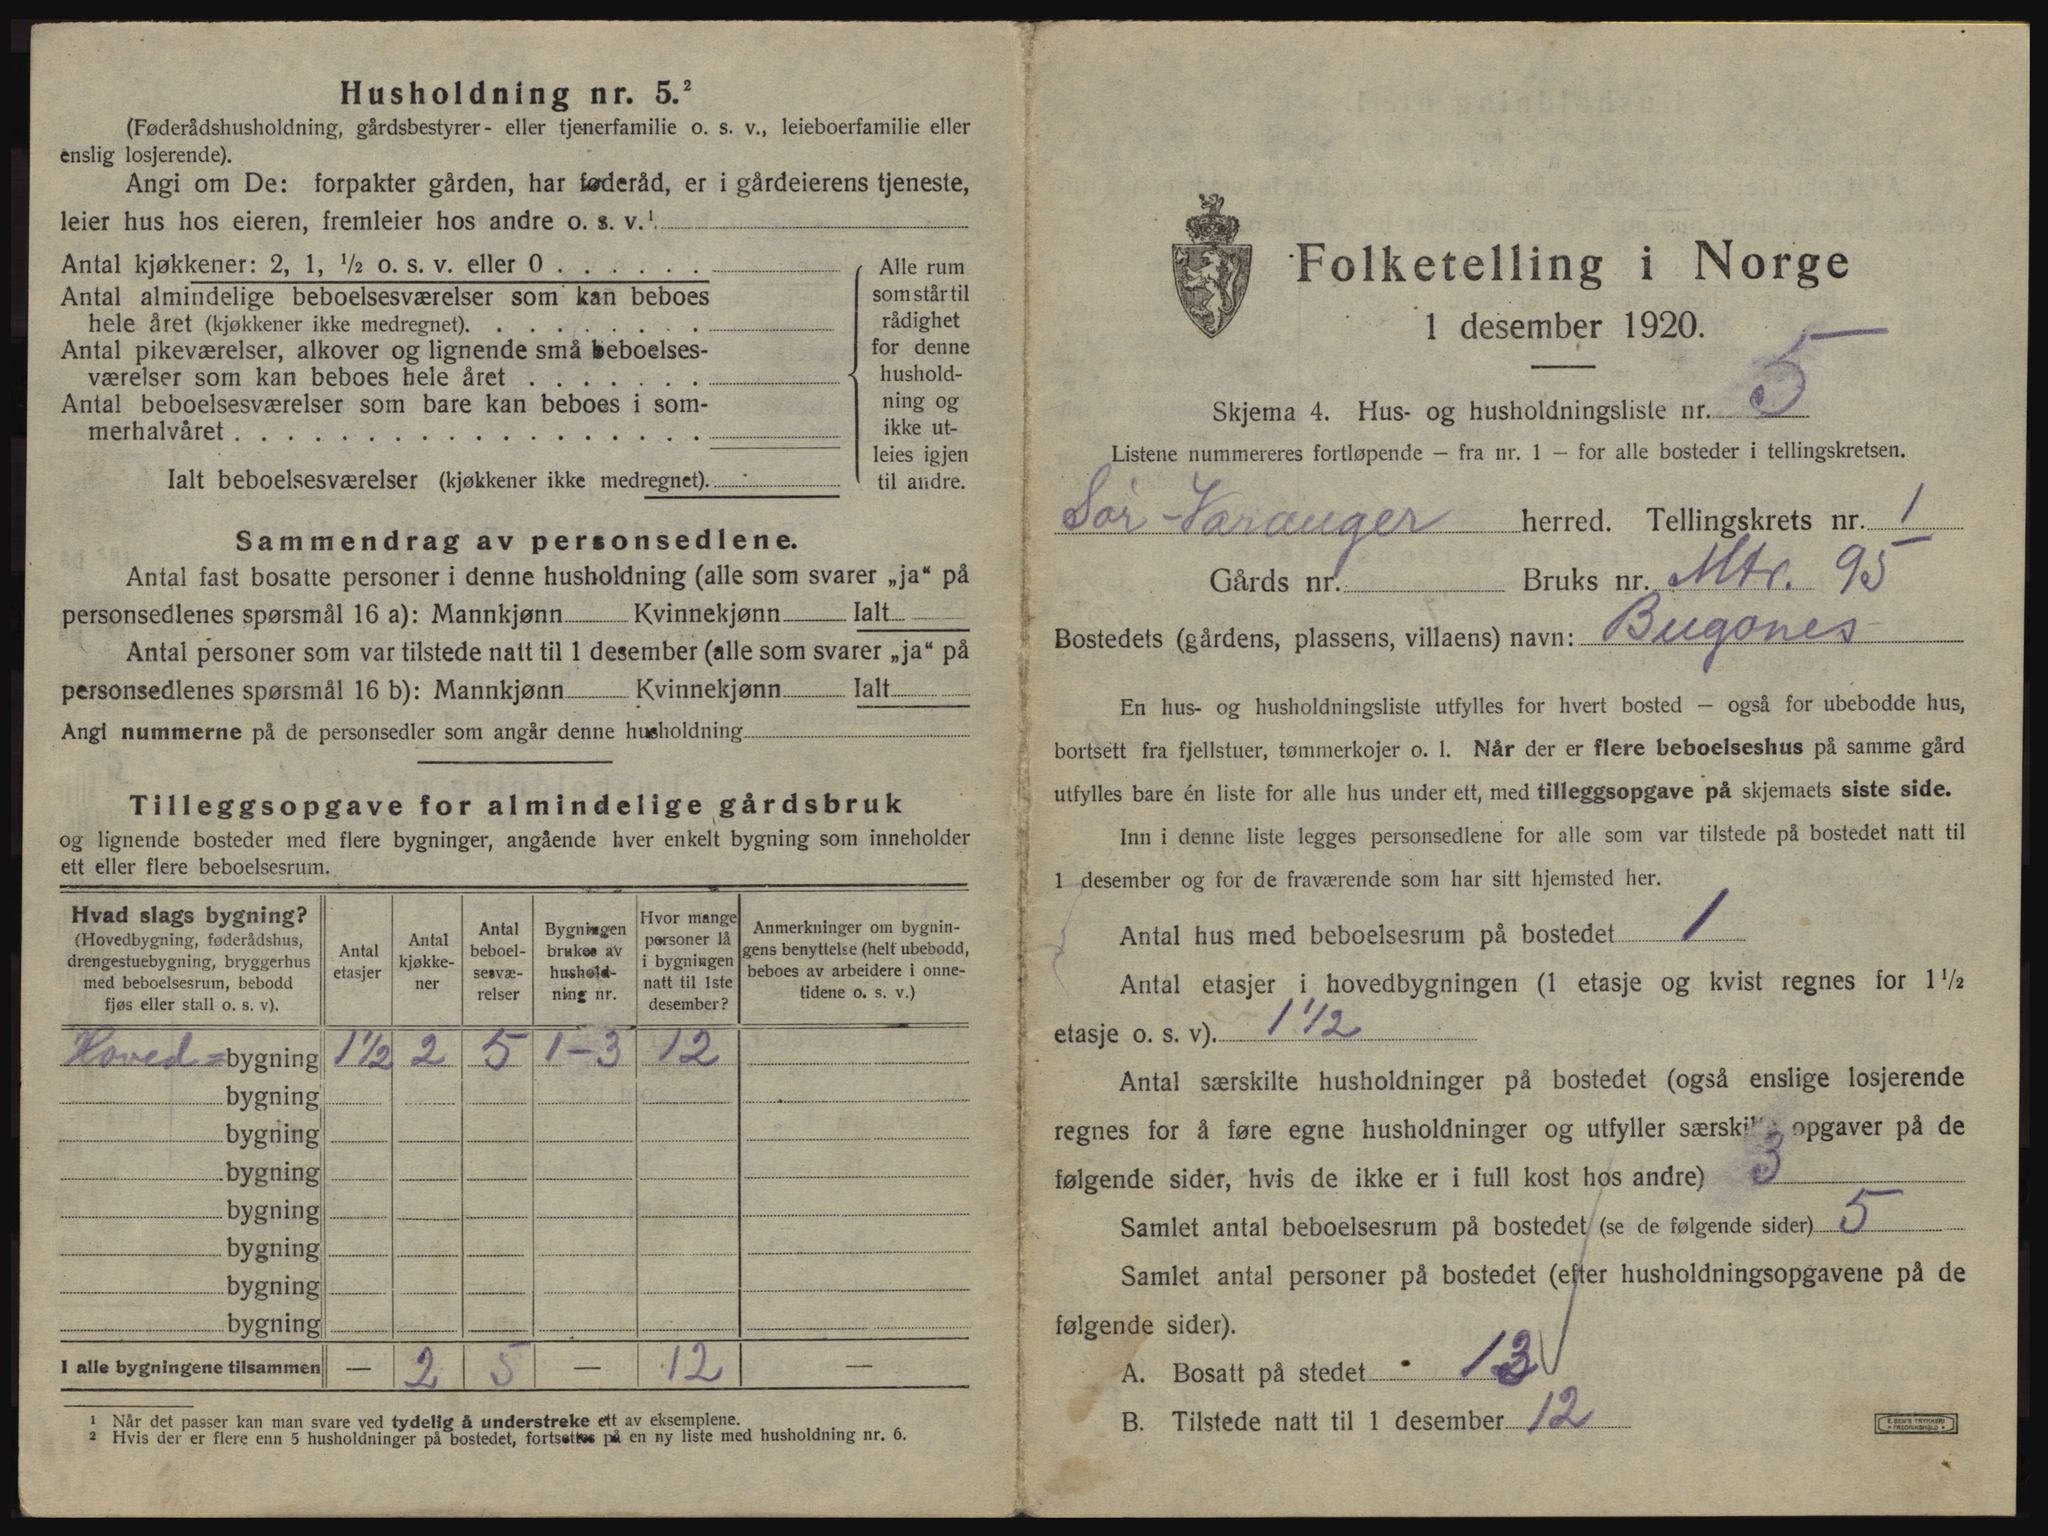 Husholdning nr. 5.²
(Føderådshusholdning, gårdsbestyrer- eller tjenerfamilie o. s. v., leieboerfamilie eller
enslig losjerende).
Angi om De: forpakter gården, har føderåd, er i gårdeierens tjeneste,
leier hus hos eieren, fremleier hos andre o. s. v.¹
Antal kjøkkener: 2, 1, ½ o. s. v. eller 0 . . . . . .
Antal almindelige beboelsesværelser som kan beboes
hele året (kjøkkener ikke medregnet). . . . . . . . .
Antal pikeværelser, alkover og lignende små beboelses-
værelser som kan beboes hele året . . . . . . .
Antal beboelsesværelser som bare kan beboes i som-
merhalvåret . . . . . . . . . . . . . . . . .
Ialt beboelsesværelser (kjøkkener ikke medregnet).
Alle rum
som står til
rådighet
for denne
hushold-
ning og
ikke ut-
leies igjen
til andre.
Sammendrag av personsedlene.
Antal fast bosatte personer i denne husholdning (alle som svarer „ja“ på
personsedlenes spørsmål 16 a): Mannkjønn Kvinnekjønn Ialt
Antal personer som var tilstede natt til 1 desember (alle som svarer „ja“ på
personsedlenes spørsmål 16 b): Mannkjønn Kvinnekjønn Ialt
Angi nummerne på de personsedler som angår denne husholdning
Tilleggsopgave for almindelige gårdsbruk
og lignende bosteder med flere bygninger, angående hver enkelt bygning som inneholder
ett eller flere beboelsesrum.
Hvad slags bygning?
(Hovedbygning, føderådshus,
drengestuebygning, bryggerhus
med beboelsesrum, bebodd
fjøs eller stall o. s. v).
Antal
etasjer
Antal
kjøkke-
ner
Antal
beboel-
sesvæ-
relser
Bygningen
brukes av
hushold-
ning nr.
Hvor mange
personer lå
i bygningen
natt til 1ste
desember?
Anmerkninger om bygnin-
gens benyttelse (helt ubebodd,
beboes av arbeidere i onne-
tidene o. s. v.)
Hoved=bygning 1½ 2 5 1-3 12
bygning
bygning
bygning
bygning
bygning
bygning
bygning
I alle bygningene tilsammen — 2 5 — 12 —
¹ Når det passer kan man svare ved tydelig å understreke ett av eksemplene.
² Hvis der er flere enn 5 husholdninger på bostedet, fortsettes på en ny liste med husholdning nr. 6.
Folketelling i Norge
1 desember 1920.
Skjema 4. Hus- og husholdningsliste nr. 5
Listene nummereres fortløpende — fra nr. 1 — for alle bosteder i tellingskretsen.
Sør-Varanger herred. Tellingskrets nr. 1
Gårds nr. Bruks nr. Mtr. 95
Bostedets (gårdens, plassens, villaens) navn: Bugønes
En hus- og husholdningsliste utfylles for hvert bosted — også for ubebodde hus,
bortsett fra fjellstuer, tømmerkojer o. l. Når der er flere beboelseshus på samme gård
utfylles bare én liste for alle hus under ett, med tilleggsopgave på skjemaets siste side.
Inn i denne liste legges personsedlene for alle som var tilstede på bostedet natt til
1 desember og for de fraværende som har sitt hjemsted her.
Antal hus med beboelsesrum på bostedet 1
Antal etasjer i hovedbygningen (1 etasje og kvist regnes for 1½
etasje o. s. v). 1½
Antal særskilte husholdninger på bostedet (også enslige losjerende
regnes for å føre egne husholdninger og utfyller særskilte opgaver på de
følgende sider, hvis de ikke er i full kost hos andre) 3
Samlet antal beboelsesrum på bostedet (se de følgende sider) 5
Samlet antal personer på bostedet (efter husholdningsopgavene på de
følgende sider).
A. Bosatt på stedet 13
B. Tilstede natt til 1 desember 12
E. SEM'S TRYKKERI
FREDRIKSHALD